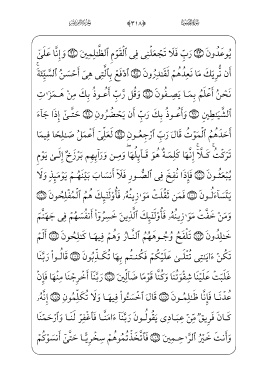 يُوعَدُونَ ۝ رَبِّ فَلَا تَجْعَلْنِى فِى ٱلْقَوْمِ ٱلظَّٰلِمِينَ ۝ وَإِنَّا عَلَىٰٓ
أَن نُّرِيَكَ مَا نَعِدُهُمْ لَقَٰدِرُونَ ۝ ٱدْفَعْ بِٱلَّتِى هِىَ أَحْسَنُ ٱلسَّيِّئَةَ ۚ
نَحْنُ أَعْلَمُ بِمَا يَصِفُونَ ۝ وَقُل رَّبِّ أَعُوذُ بِكَ مِنْ هَمَزَٰتِ
ٱلشَّيَٰطِينِ ۝ وَأَعُوذُ بِكَ رَبِّ أَن يَحْضُرُونِ ۝ حَتَّىٰٓ إِذَا جَآءَ
أَحَدَهُمُ ٱلْمَوْتُ قَالَ رَبِّ ٱرْجِعُونِ ۝ لَعَلِّىٓ أَعْمَلُ صَٰلِحًا فِيمَا
تَرَكْتُ ۚ كَلَّآ ۚ إِنَّهَا كَلِمَةٌ هُوَ قَآئِلُهَا ۖ وَمِن وَرَآئِهِم بَرْزَخٌ إِلَىٰ يَوْمِ
يُبْعَثُونَ ۝ فَإِذَا نُفِخَ فِى ٱلصُّورِ فَلَآ أَنسَابَ بَيْنَهُمْ يَوْمَئِذٍ وَلَا
يَتَسَآءَلُونَ ۝ فَمَن ثَقُلَتْ مَوَٰزِينُهُۥ فَأُو۟لَٰٓئِكَ هُمُ ٱلْمُفْلِحُونَ ۝
وَمَنْ خَفَّتْ مَوَٰزِينُهُۥ فَأُو۟لَٰٓئِكَ ٱلَّذِينَ خَسِرُوٓا۟ أَنفُسَهُمْ فِى جَهَنَّمَ
خَٰلِدُونَ ۝ تَلْفَحُ وُجُوهَهُمُ ٱلنَّارُ وَهُمْ فِيهَا كَٰلِحُونَ ۝ أَلَمْ
تَكُنْ ءَايَٰتِى تُتْلَىٰ عَلَيْكُمْ فَكُنتُم بِهَا تُكَذِّبُونَ ۝ قَالُوا۟ رَبَّنَا
غَلَبَتْ عَلَيْنَا شِقْوَتُنَا وَكُنَّا قَوْمًا ضَآلِّينَ ۝ رَبَّنَآ أَخْرِجْنَا مِنْهَا فَإِنْ
عُدْنَا فَإِنَّا ظَٰلِمُونَ ۝ قَالَ ٱخْسَـُٔوا۟ فِيهَا وَلَا تُكَلِّمُونِ ۝ إِنَّهُۥ
كَانَ فَرِيقٌ مِّنْ عِبَادِى يَقُولُونَ رَبَّنَآ ءَامَنَّا فَٱغْفِرْ لَنَا وَٱرْحَمْنَا
وَأَنتَ خَيْرُ ٱلرَّٰحِمِينَ ۝ فَٱتَّخَذْتُمُوهُمْ سِخْرِيًّا حَتَّىٰٓ أَنسَوْكُمْ